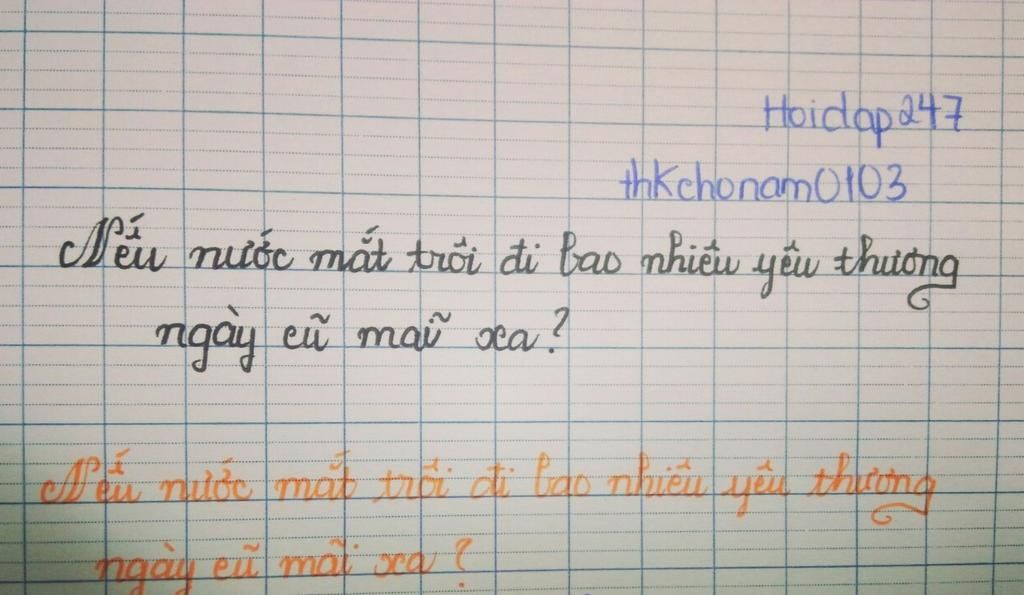 Hoidap247
thkchonam0103
Nếu nước mắt trôi đi bao nhiêu yêu thương
ngày cũ mãi xa?
Nếu nước mắt trôi đi bao nhiêu yêu thương
ngày cũ mãi xa?